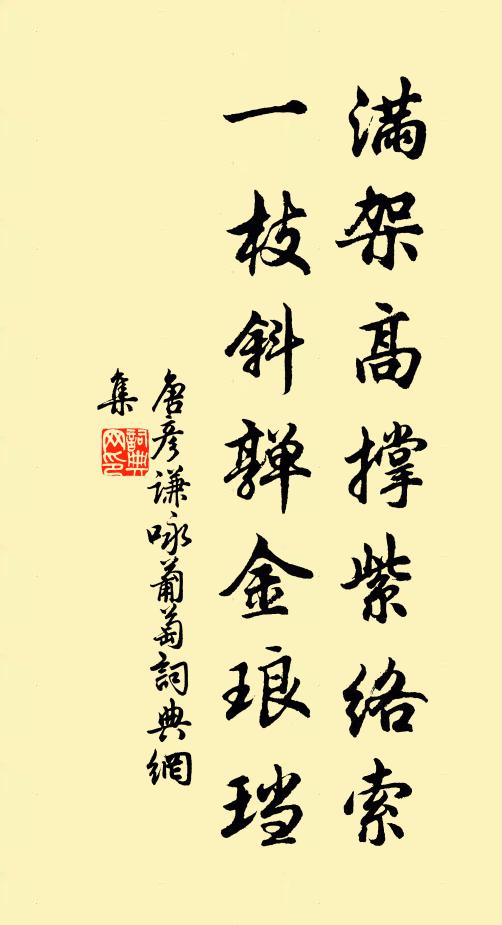 满架高撑紫络索
一枝斜亸金琅珰
唐彦谦咏葡萄詞典網
集
詞典
网印